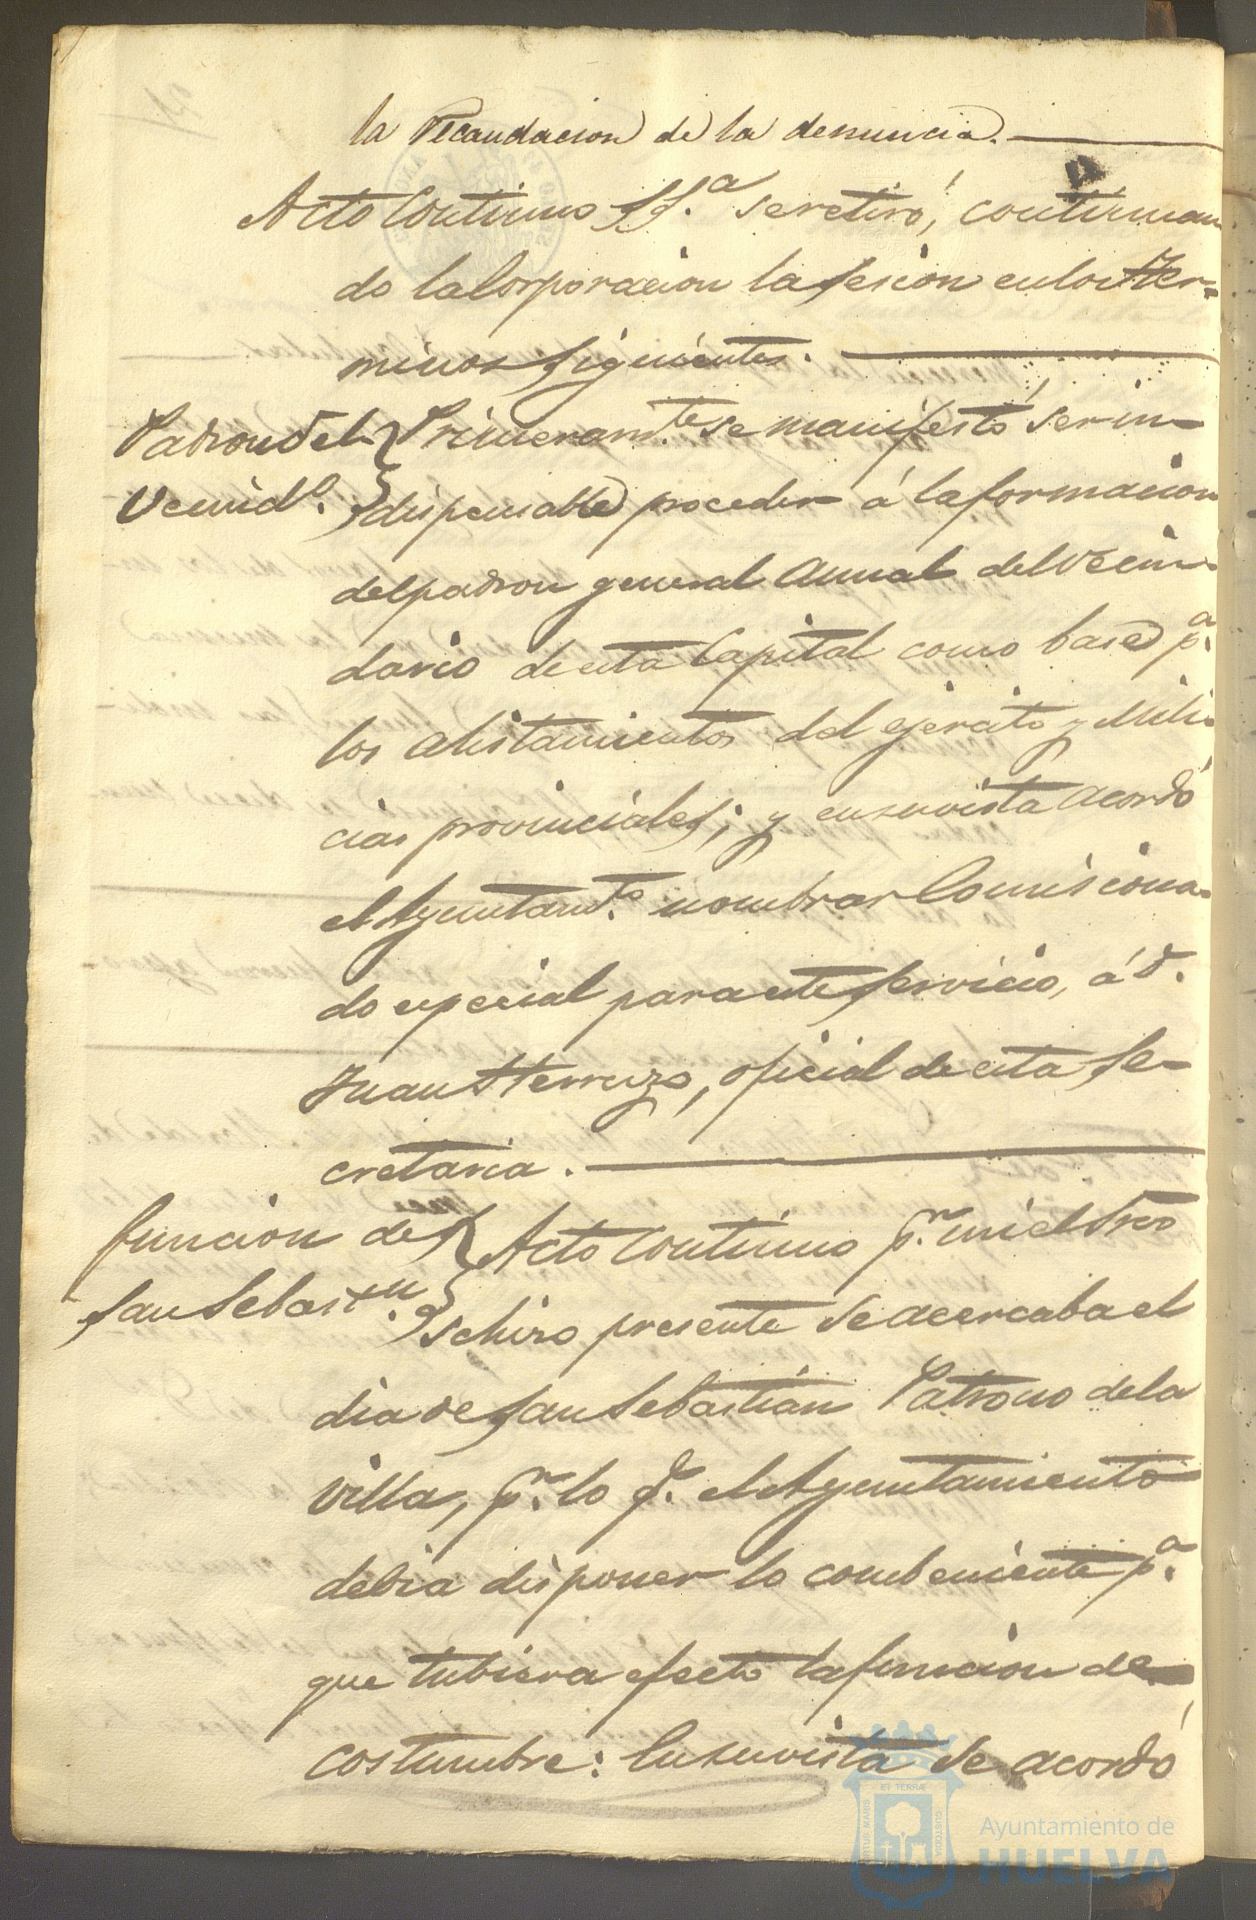 la recaudacion de la denuncia.
Acto continuo S.S.ª se retiró, continuan
do la Corporacion la sesion en los ter-
minos siguientes.
Padron del
Vecind.º
Primeram.te se manifestó, ser in-
dispensable proceder á la formacion
del padron general anual del vecin-
dario de esta Capital como base p.ª
los alistamientos del ejercito y Mili-
cias provinciales; y en su vista acordó
el Ayuntam.to nombrar Comisiona-
do especial para este servicio, á D.
Juan Herrezo, oficial de esta Se-
cretaria.
funcion de
San Sebast.n
Acto continuo p.r mi el Srio
se hizo presente se acercaba el
dia de San Sebastián Patrono de la
villa, p.r lo q.e el Ayuntamiento
debia disponer lo combeniente p.ª
que tubiera efecto la funcion de
costumbre: En su vista se acordó
Ayuntamiento de
HUELVA